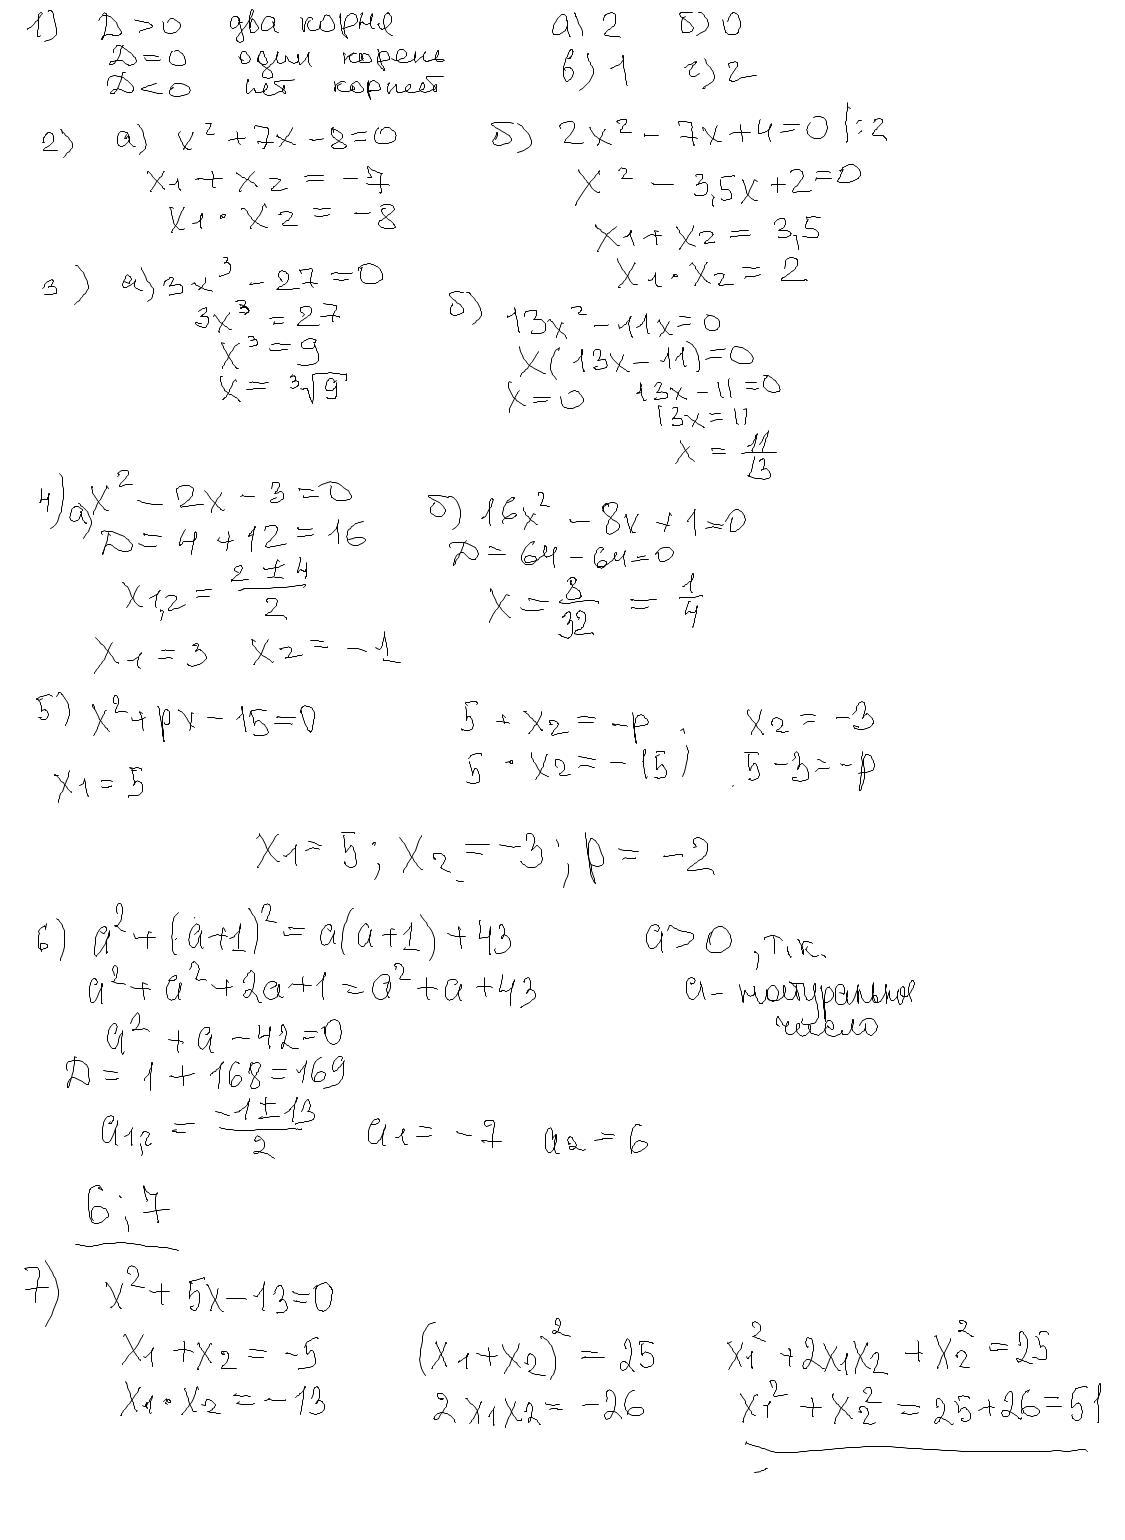 1) D > 0 два корня
D = 0 один корень
D < 0 нет корней
а) 2 б) 0
в) 1 г) 2
2) а) x² + 7x - 8 = 0
x₁ + x₂ = -7
x₁ · x₂ = -8
б) 2x² - 7x + 4 = 0 |:2
x² - 3,5x + 2 = 0
x₁ + x₂ = 3,5
x₁ · x₂ = 2
3) а) 3x³ - 27 = 0
3x³ = 27
x³ = 9
x = ³√9
б) 13x² - 11x = 0
x(13x - 11) = 0
x = 0 13x - 11 = 0
13x = 11
x = 11/13
4) а) x² - 2x - 3 = 0
D = 4 + 12 = 16
x₁,₂ = (2 ± 4)/2
x₁ = 3 x₂ = -1
б) 16x² - 8x + 1 = 0
D = 64 - 64 = 0
x = 8/32 = 1/4
5) x² + px - 15 = 0
x₁ = 5
5 + x₂ = -p ;
5 · x₂ = -15
x₂ = -3
5 - 3 = -p
x₁ = 5 ; x₂ = -3 ; p = -2
6) a² + (a+1)² = a(a+1) + 43
a² + a² + 2a + 1 = a² + a + 43
a² + a - 42 = 0
D = 1 + 168 = 169
a₁,₂ = (-1 ± 13)/2 a₁ = -7 a₂ = 6
a > 0, т.к.
a - натуральное
число
6 ; 7
7) x² + 5x - 13 = 0
x₁ + x₂ = -5
x₁ · x₂ = -13
(x₁ + x₂)² = 25
2x₁x₂ = -26
x₁² + 2x₁x₂ + x₂² = 25
x₁² + x₂² = 25 + 26 = 51